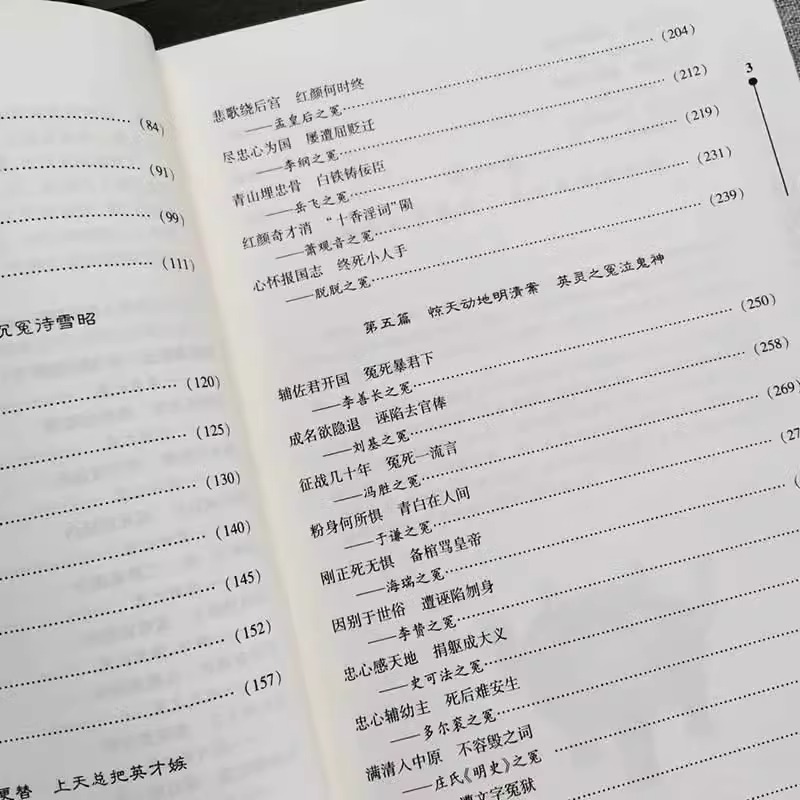 (84)
(91)
(99)
(111)
沉冤待雪昭
(120)
(125)
(130)
(140)
(145)
(152)
(157)
更替 上天总把英才嫉
3
悲歌绕后宫 红颜何时终
——孟皇后之冤……(204)
尽忠心为国 屡遭屈贬迁
——李纲之冤……(212)
青山埋忠骨 白铁铸佞臣
——岳飞之冤……(219)
红颜奇才消 “十香淫词”陨
——萧观音之冤……(231)
心怀报国志 终死小人手
——脱脱之冤……(239)
第五篇 惊天动地明清案 英灵之冤泣鬼神
辅佐君开国 冤死暴君下
——李善长之冤……(250)
成名欲隐退 诬陷去官俸
——刘基之冤……(258)
征战几十年 冤死一流言
——冯胜之冤……(269)
粉身何所惧 青白在人间
——于谦之冤……(27
刚正死无惧 备棺骂皇帝
——海瑞之冤……
因别于世俗 遭诬陷刎身
——李贽之冤……
忠心感天地 捐躯成大义
——史可法之冤……
忠心辅幼主 死后难安生
——多尔衮之冤……
满清入中原 不容毁之词
——庄氏《明史》之冤……
遭文字冤狱